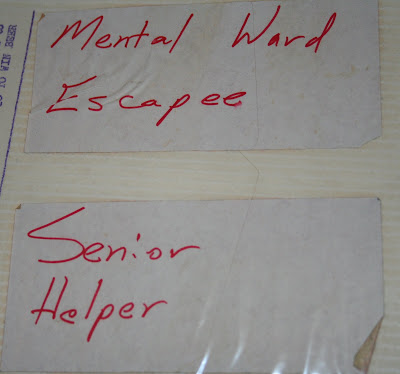 Mental Ward
Escapee
Senior
Helper